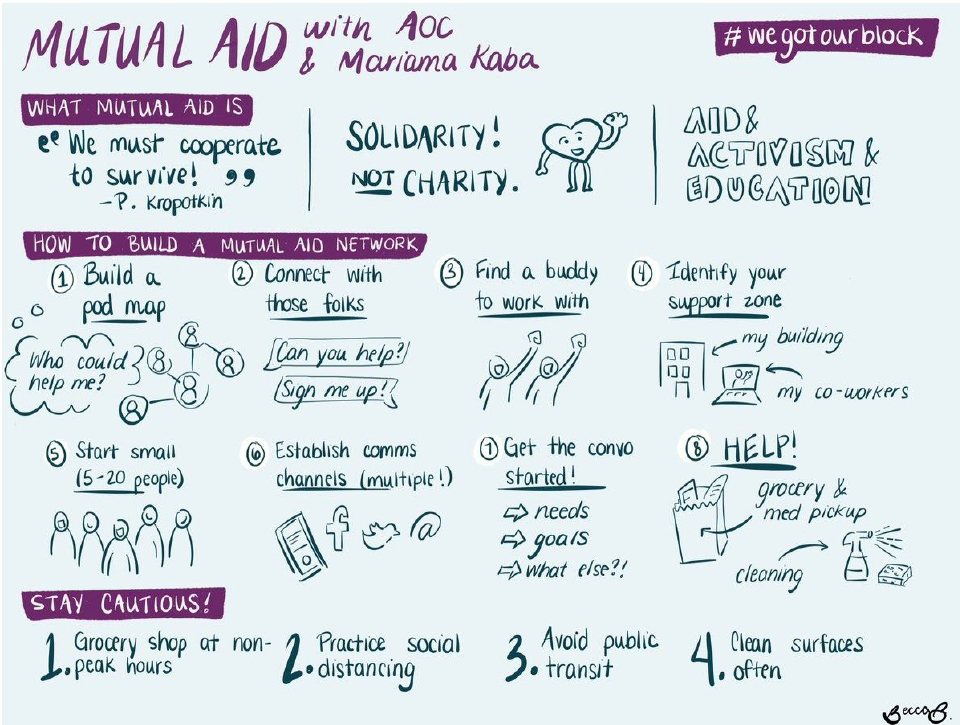 MUTUAL AID with AOC
& Mariama Kaba
#wegotourblock
WHAT MUTUAL AID IS
"We must cooperate
to survive!"
-P. Kropotkin
SOLIDARITY!
NOT CHARITY.
AID &
ACTIVISM &
EDUCATION
HOW TO BUILD A MUTUAL AID NETWORK
1 Build a
pod map
Who could
help me?
2 Connect with
those folks
Can you help?!
Sign me up!
3 Find a buddy
to work with
4 Identify your
support zone
my building
my co-workers
5 Start small
(5-20 people)
6 Establish comms
channels (multiple!)
f @
7 Get the convo
started!
⇨ needs
⇨ goals
⇨ what else?!
8 HELP!
grocery &
med pickup
cleaning
STAY CAUTIOUS!
1. Grocery shop at non-
peak hours
2. Practice social
distancing
3. Avoid public
transit
4. Clean surfaces
often
BeccaB.